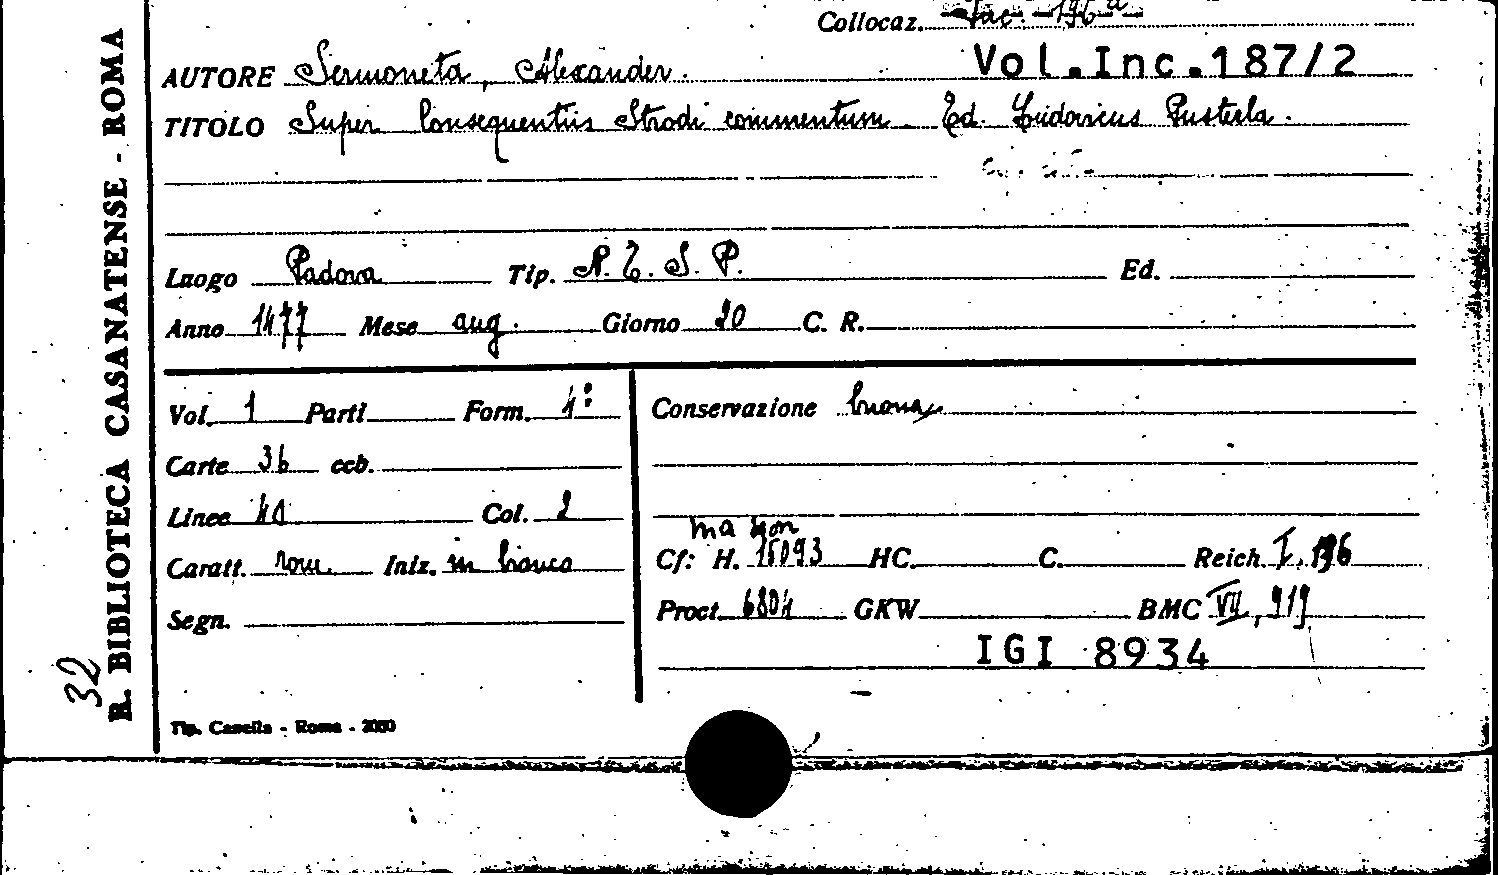 Collocaz. Inc. 196
AUTORE Sermoneta, Alexander. Vol.Inc.187/2
TITOLO Super Consequentiis Strodi commentum. Ed. Ludovicus Pusterla.
Luogo Padova Tip. N. T. S. P. Ed.
Anno 1477 Mese aug. Giorno 20 C. R.
Vol. 1 Parti Form. 4°
Carte 36 ccb.
Linee 40 Col. 2
Caratt. rom. Iniz. in bianco
Segn.
Conservazione buona
ma non
Cf: H. 15093 HC. C. Reich. I, 196
Proct. 6804 GKW BMC VII, 919
IGI 8934
Tip. Casella - Roma - 2050
R. BIBLIOTECA CASANATENSE - ROMA
32